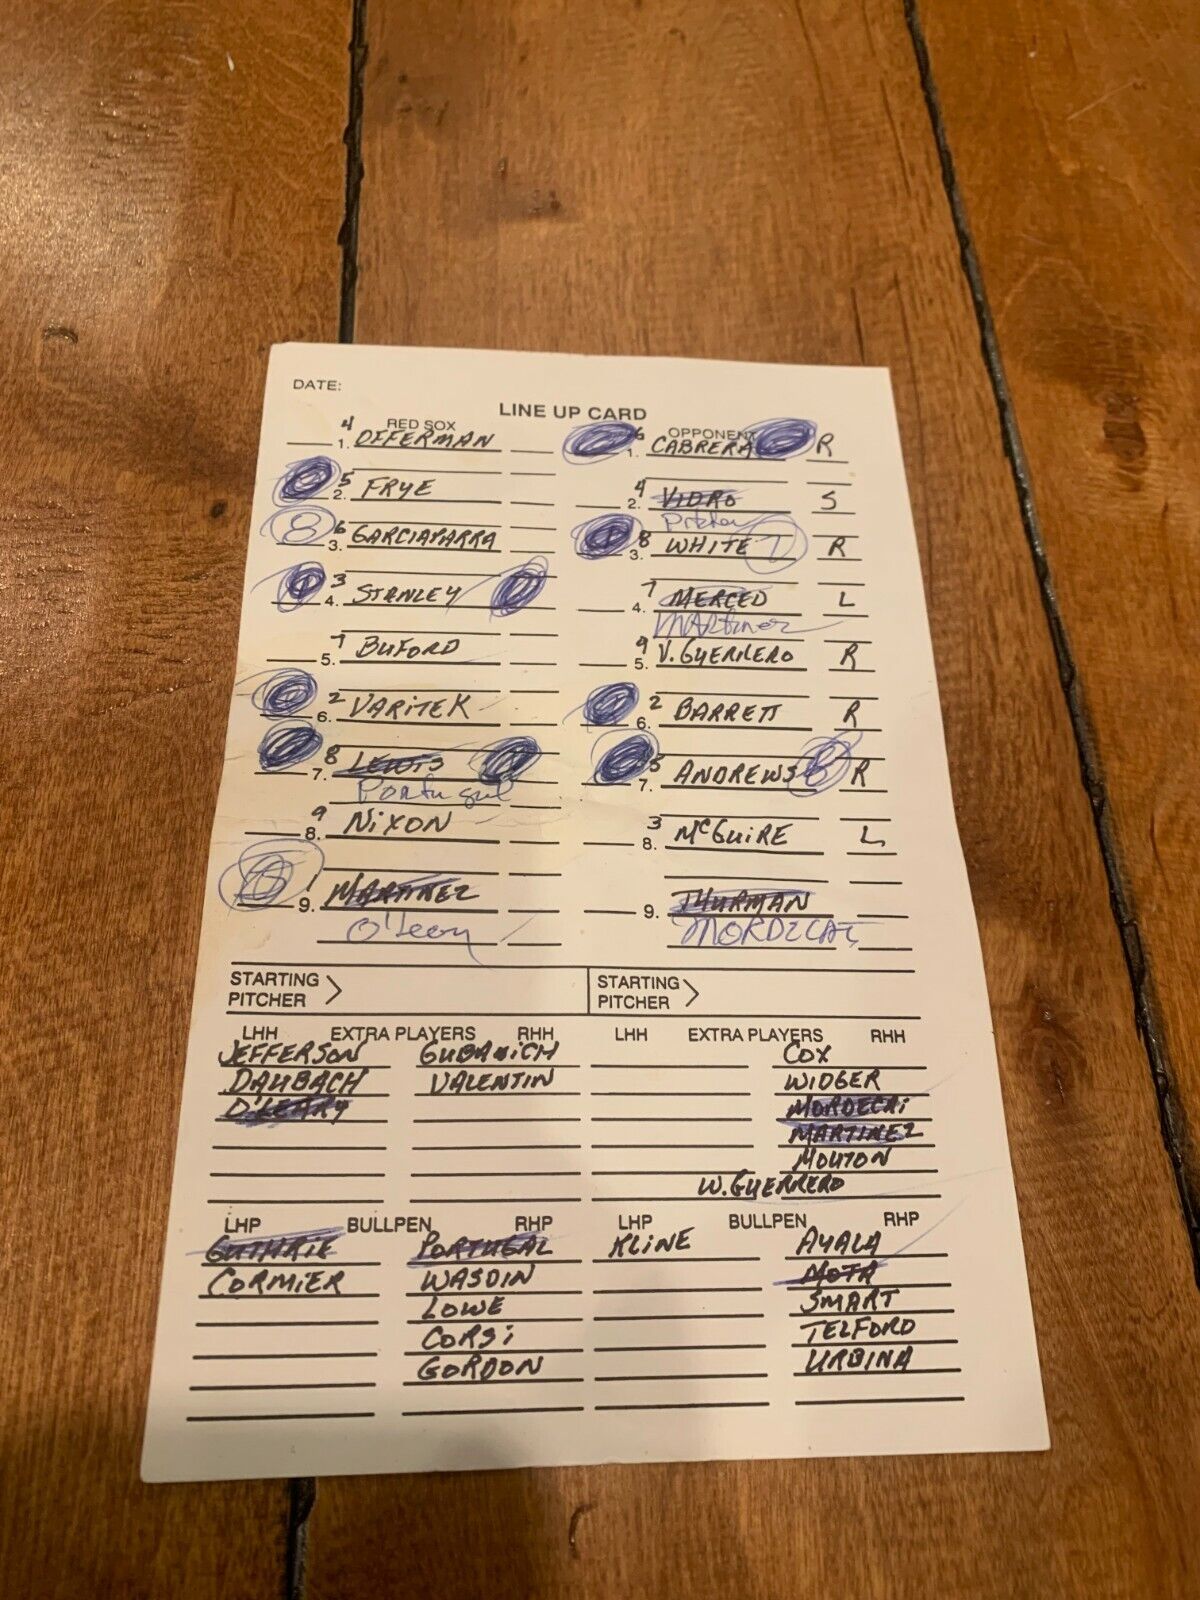 DATE:
LINE UP CARD
RED SOX
4 1. OFFERMAN
5 2. FRYE
8 6 3. GARCIAPARRA
3 4. STANLEY
7 5. BUFORD
2 6. VARITEK
8 7. LEWIS
Portugal
9 8. NIXON
1 9. MARTINEZ
O'Leary
OPPONENT
6 1. CABRERA R
4 2. VIDRO S
Pitcher
8 3. WHITE 7 R
7 4. MERCED L
MARTINEZ
9 5. V. GUERRERO R
2 6. BARRETT R
5 7. ANDREWS 8 R
3 8. McGUIRE L
9. THURMAN
MORDECAI
STARTING PITCHER >
STARTING PITCHER >
LHH EXTRA PLAYERS RHH
JEFFERSON GUBANICH
DAUBACH VALENTIN
O'LEARY
LHH EXTRA PLAYERS RHH
COX
WIDGER
MORDECAI
MARTINEZ
MOUTON
W. GUERRERO
LHP BULLPEN RHP
GUTHRIE PORTUGAL
CORMIER WASDIN
LOWE
CORSI
GORDON
LHP BULLPEN RHP
KLINE AYALA
MOTA
SMART
TELFORD
URBINA